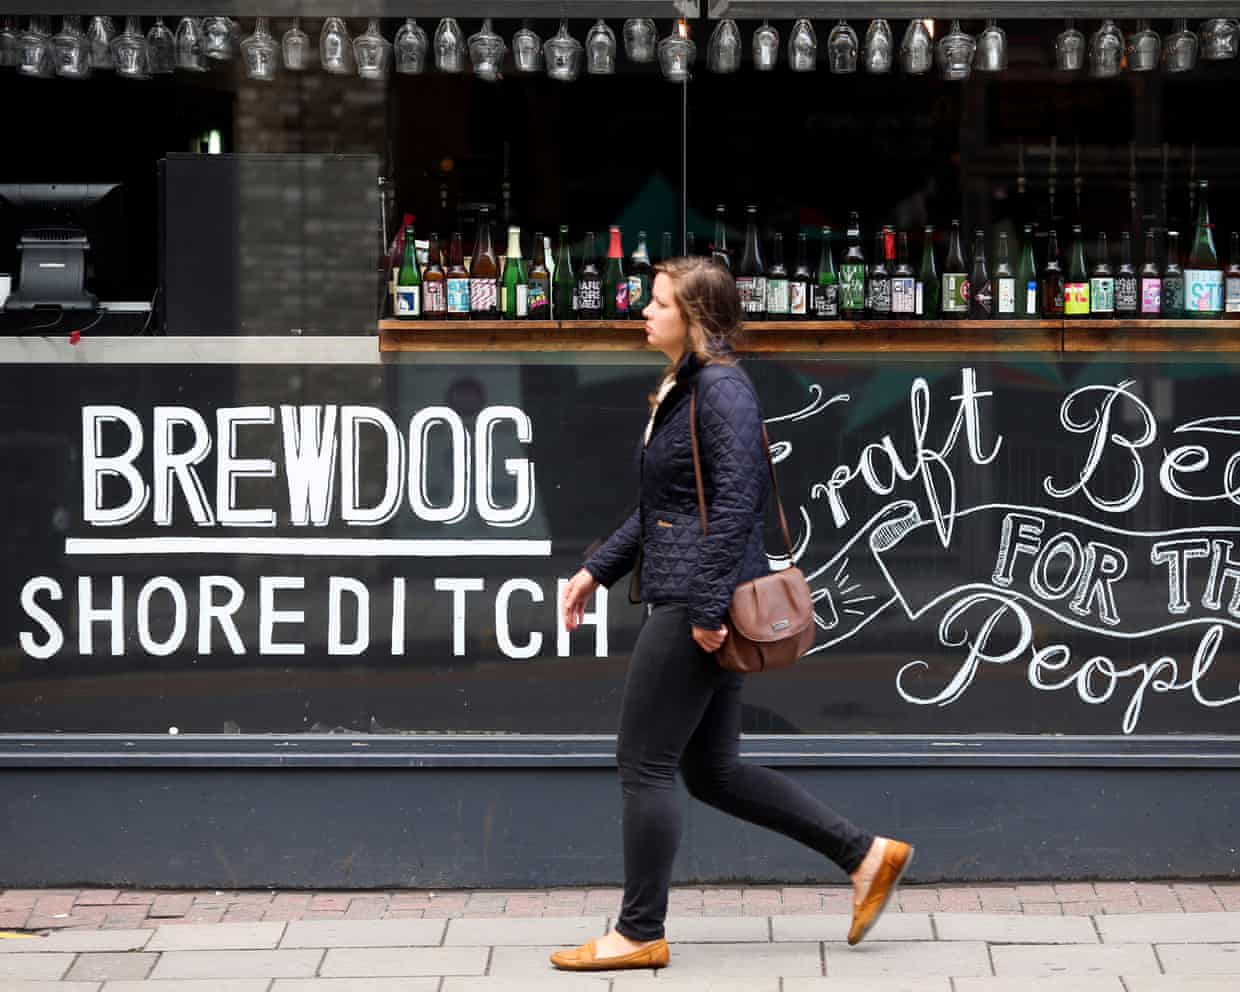 BREWDOG
SHOREDITCH
Craft Bee
FOR TH
Peopl